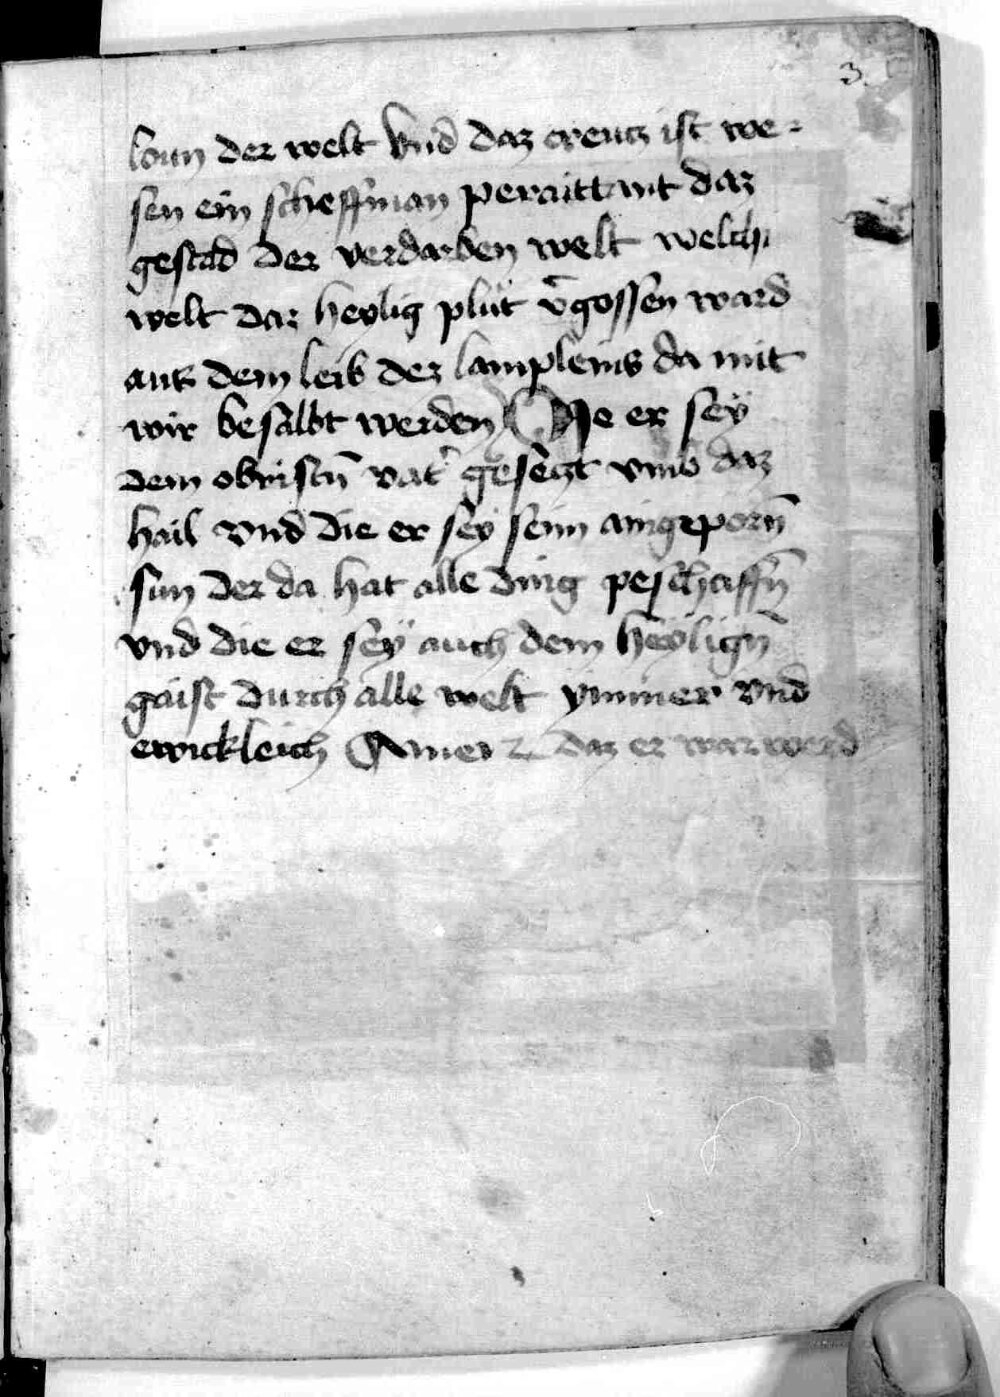 3
lonn der welt Vnd daz creutz ist we=
sen ein scheffman peraittent daz
gestad der verdarben welt welch
welt daz heylig plůt v̄gossen ward
auß dem leib dez lampleins da mit
wir besalbt werden Die er sey
dem obristn̄ vat' gesetzt vmb daz
hail vnd die er sey seim aingeporn̄
sun der da hat alle ding peschaffn̄
vnd die er sey auch dem heylign̄
gaist durch alle welt ymmer vnd
ewickleich Amen daz er war werd